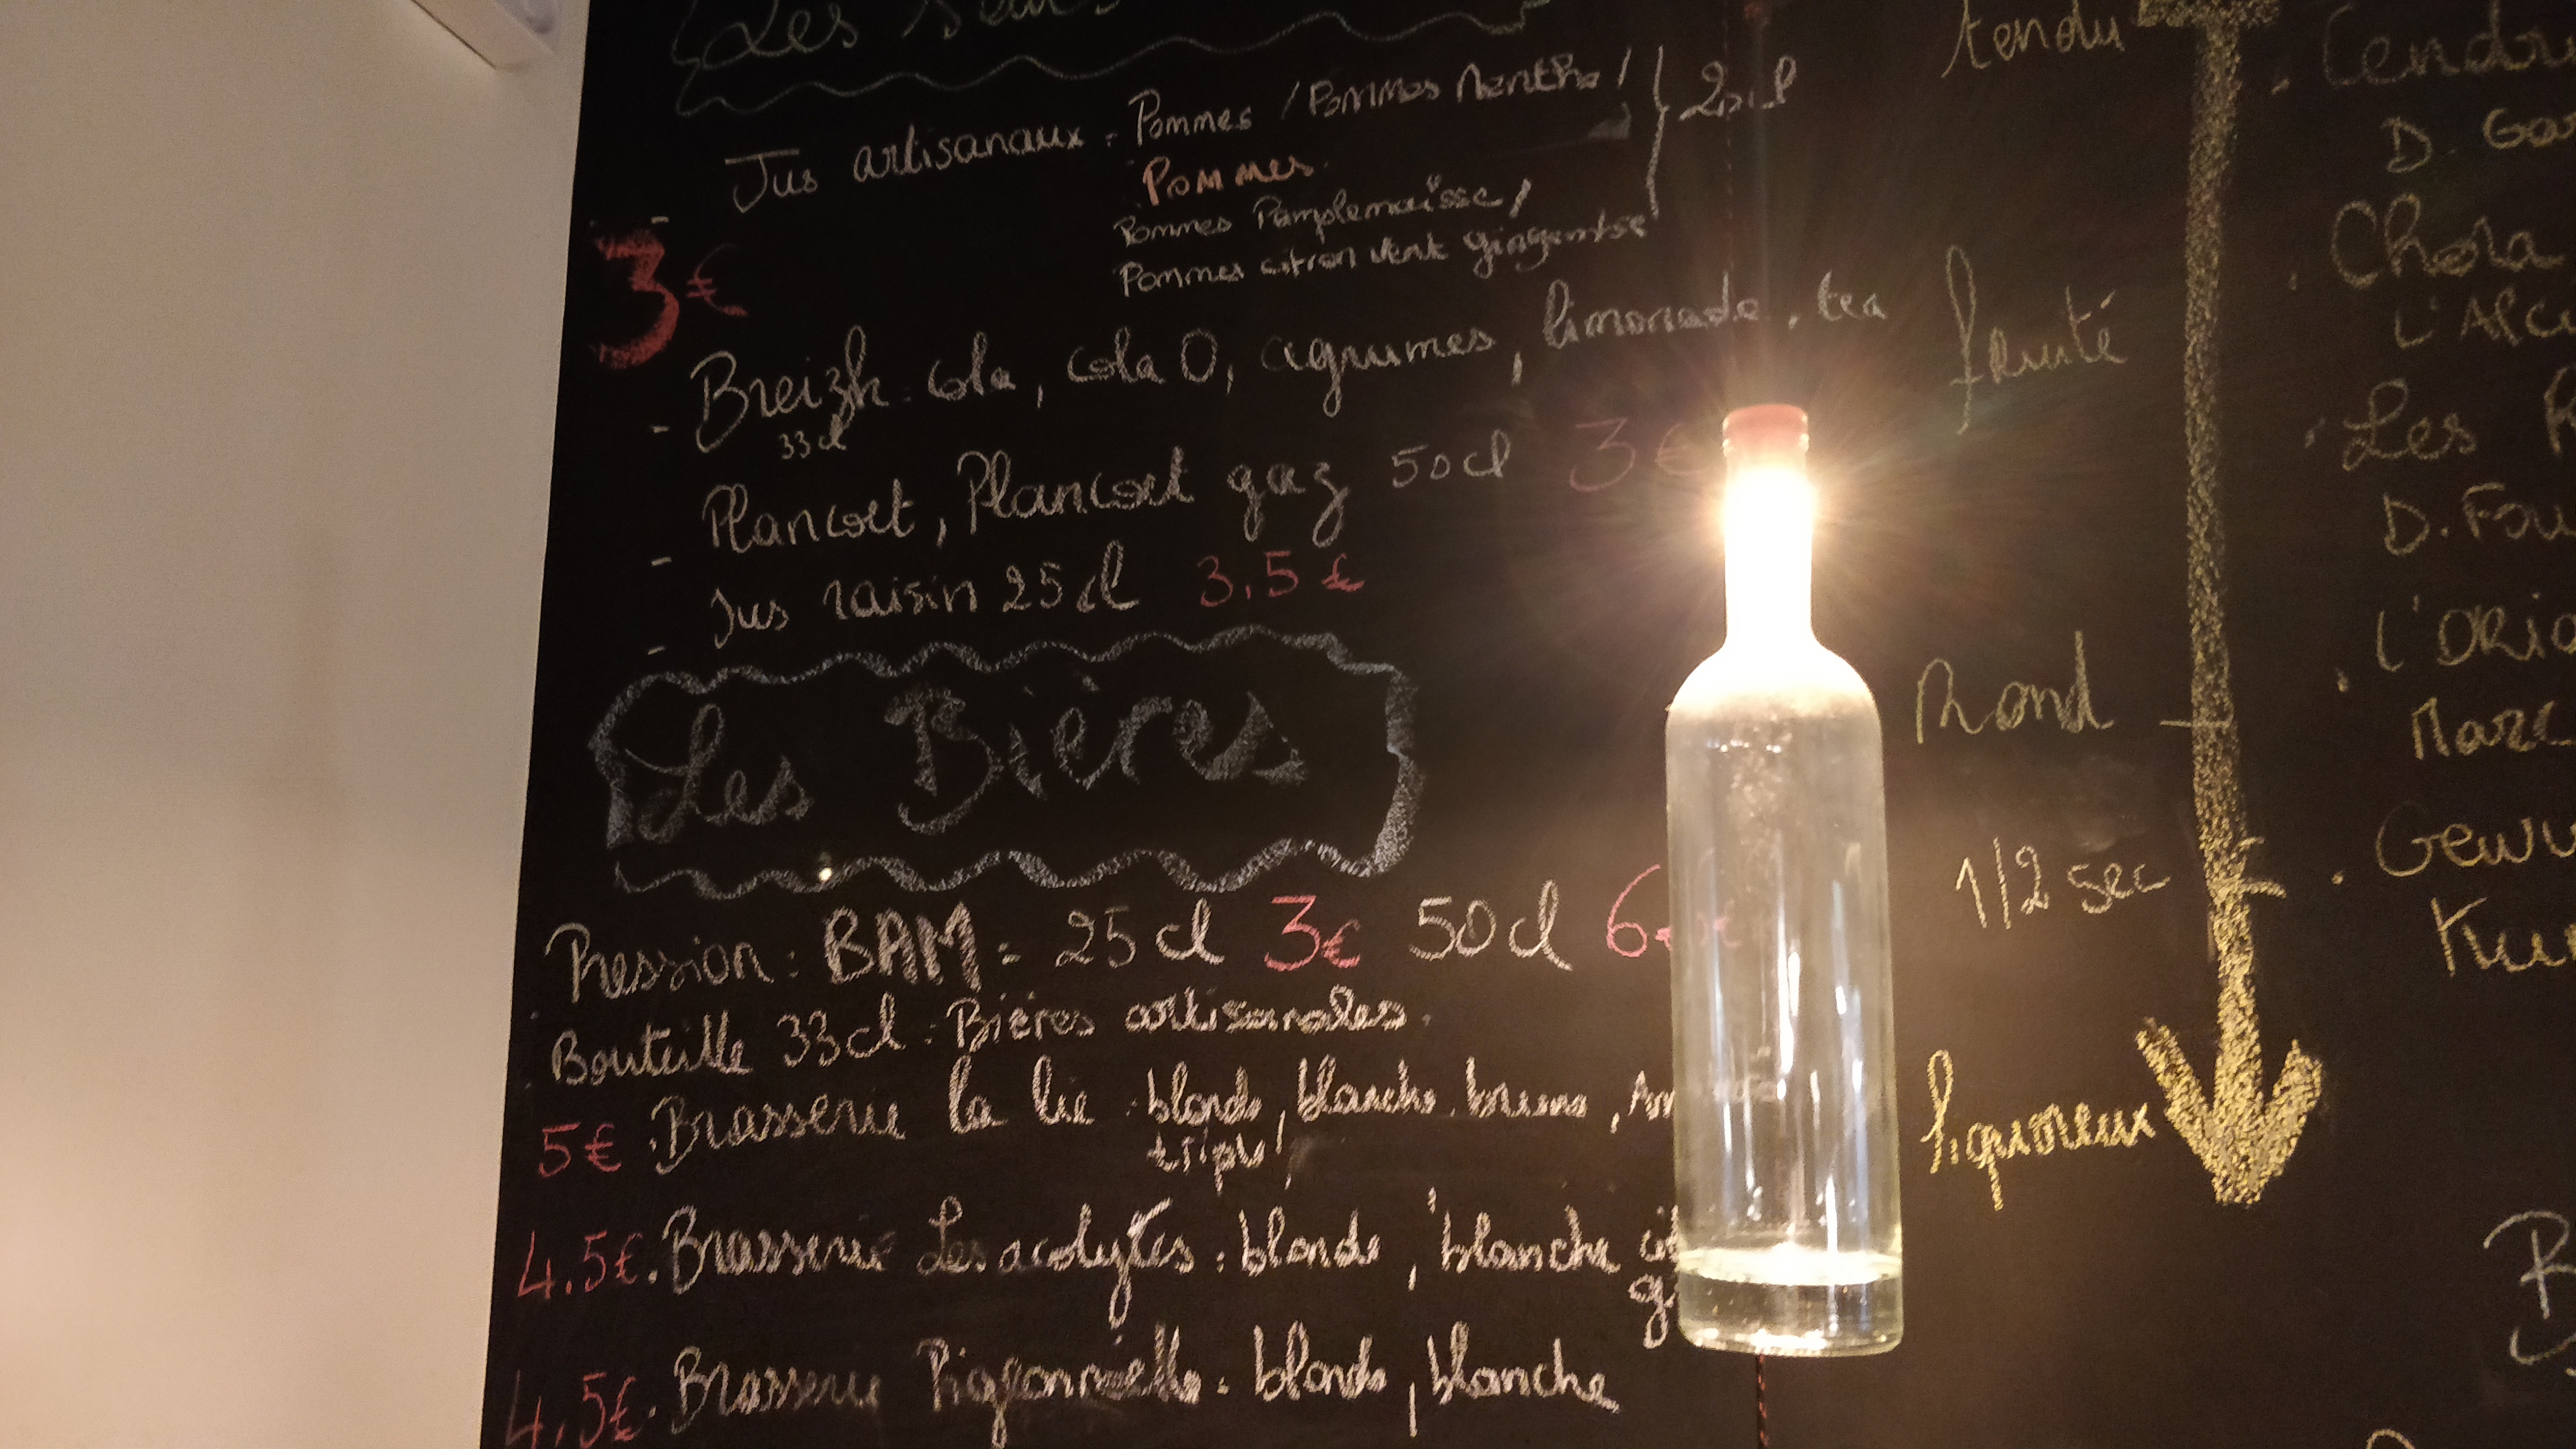 Les
Jus artisanaux : Pommes / Pommes Menthe /
Pommes
Pommes Pamplemousse /
Pommes citron vert gingembre
3€
- Breizh : cola, cola 0, agrumes, limonade, tea
33cl
- Plancoët, Plancoët gaz 50cl 3€
- Jus raisin 25cl 3,5€
Les Bières
Pression : BAM = 25cl 3€ 50cl 6
Bouteille 33cl : Bières artisanales.
5€ . Brasserie la lie : blonde, blanche, brune,
triple
4.5€ . Brasserie Les acolytes : blonde, blanche
4,5€ . Brasserie Pigeonnelle : blonde, blanche
tendu
fruité
Rond
1/2 sec
liquoreux
D.
L'
. Les
D. Fou
Marc